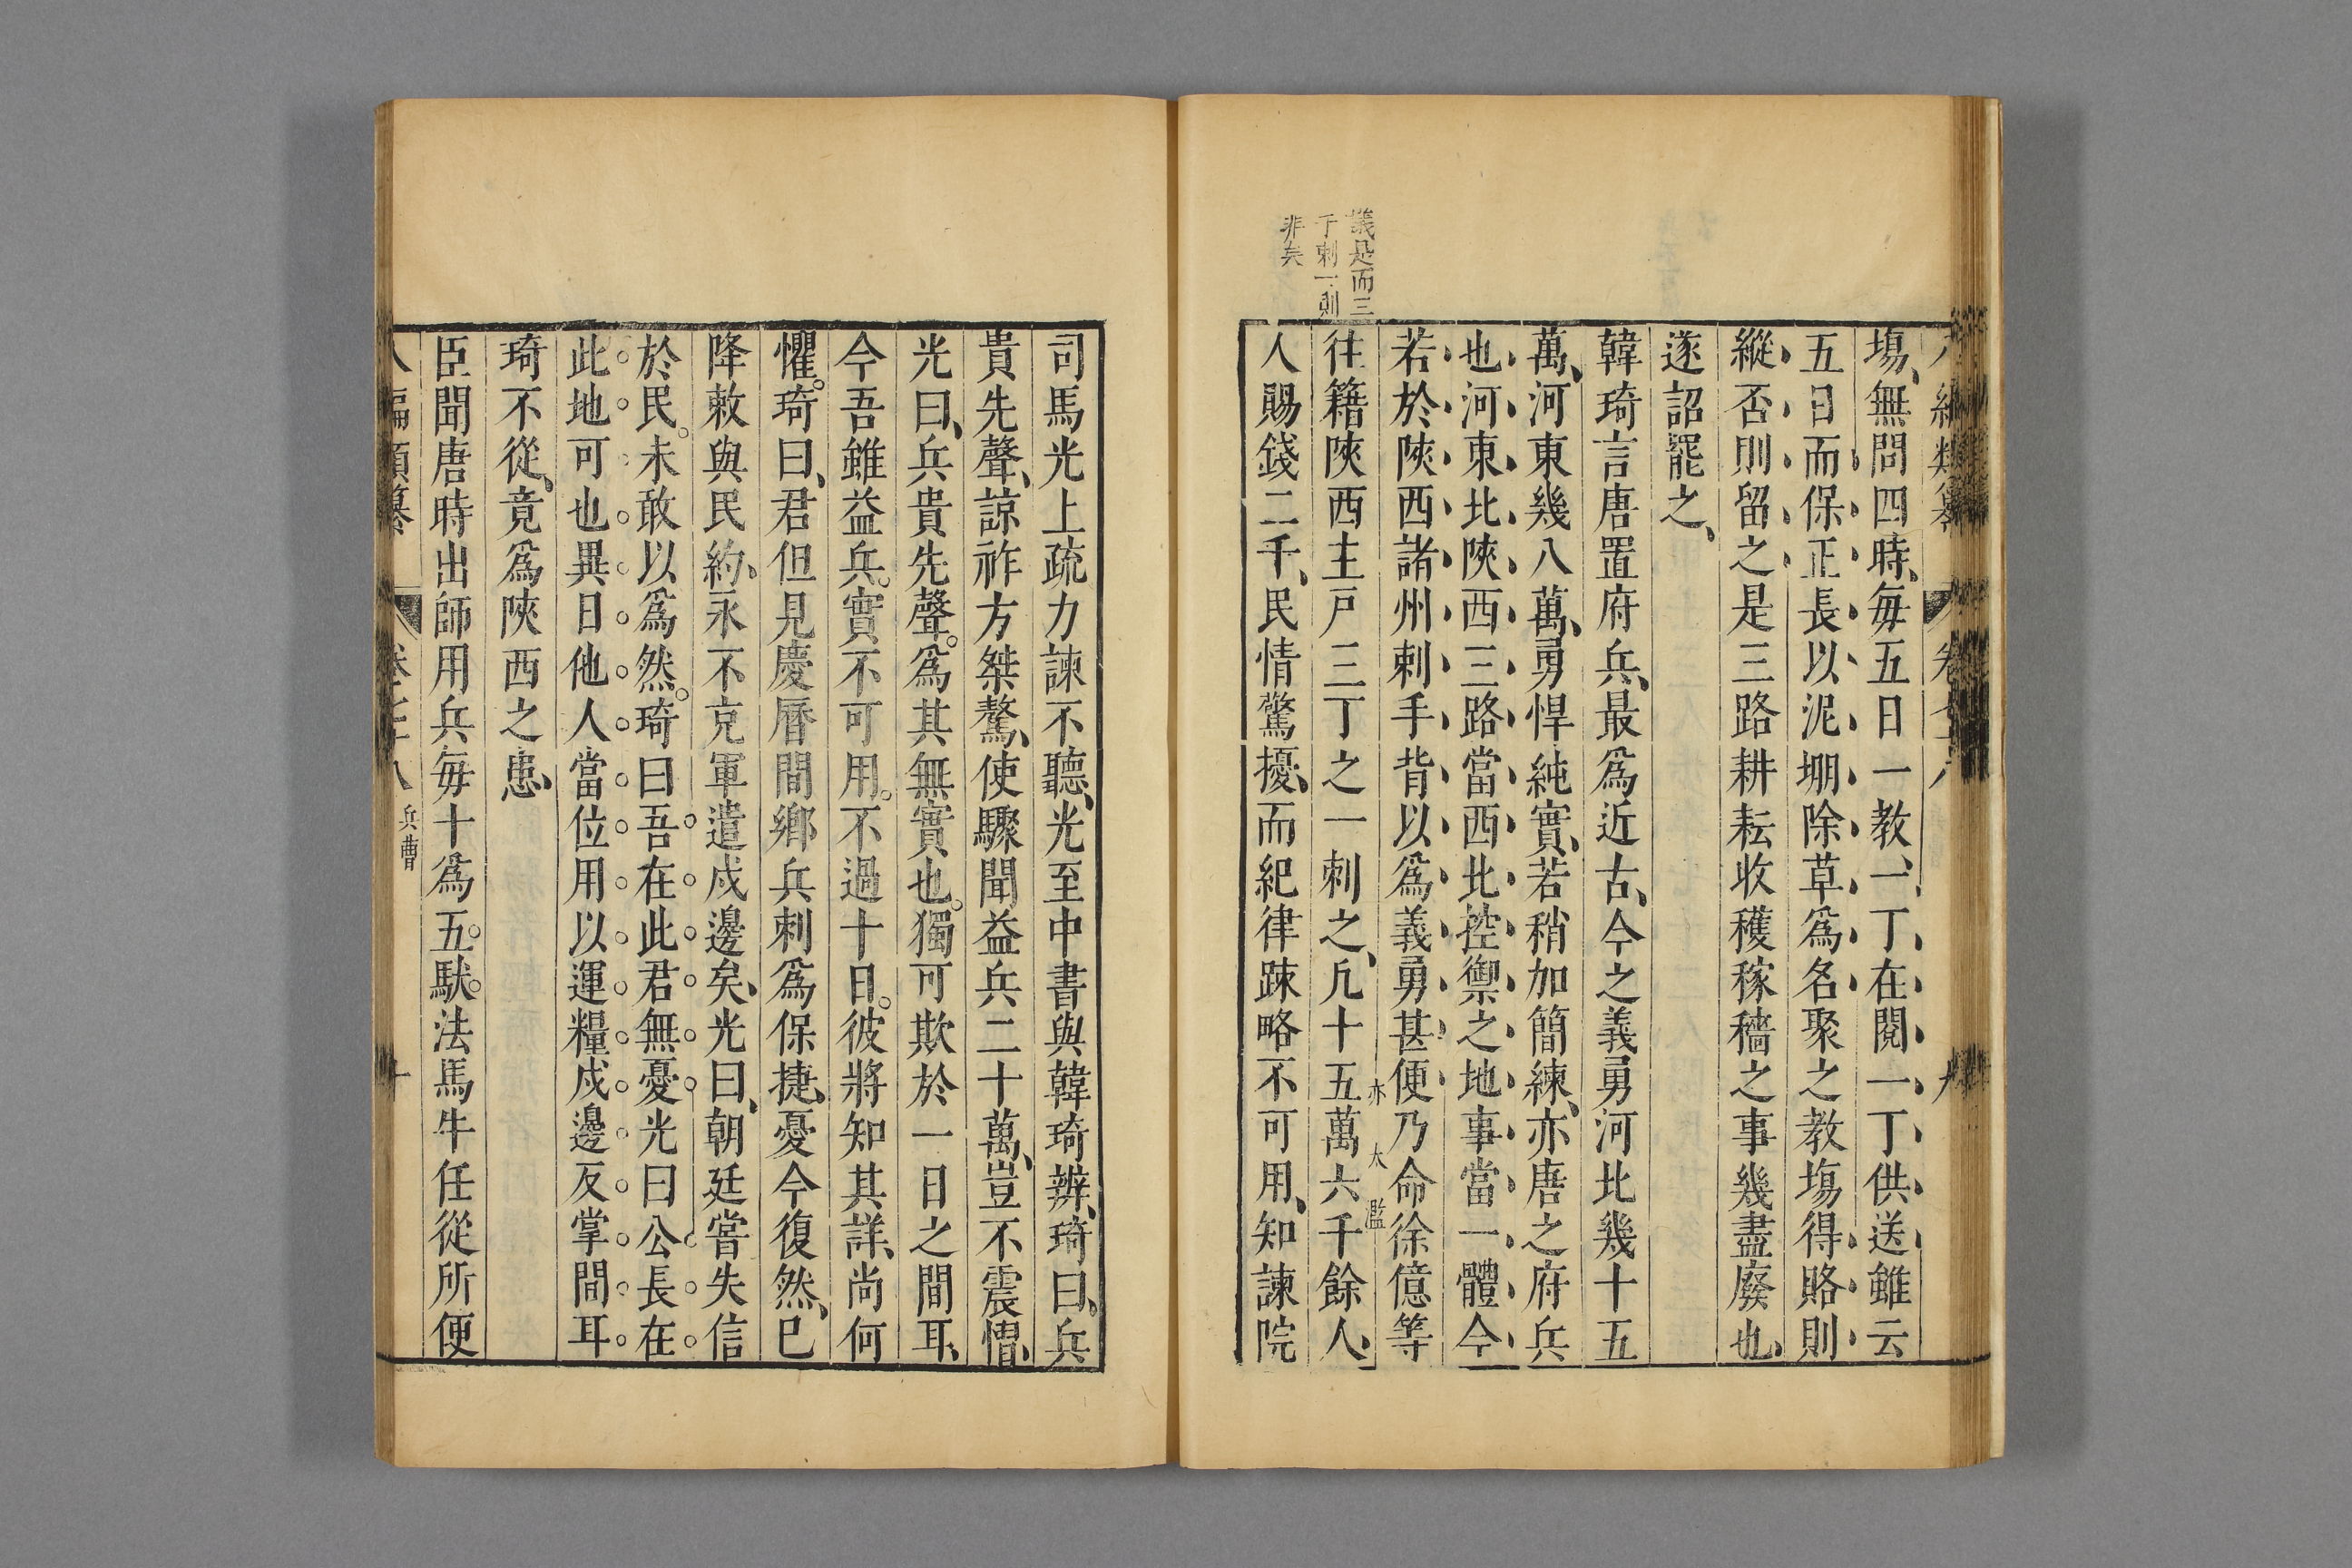 八編類纂 卷七十八 九
議是而三
丁刺一則
非矣
塲、無問四時、每五日一教、一丁在閱一丁供送雖云
五日而保正長以泥堋除草爲名聚之教塲得賂則
縱否則留之是三路耕耘收穫稼穡之事幾盡廢也、
遂詔罷之、
韓琦言唐置府兵、最爲近古、今之義勇河北幾十五
萬、河東幾八萬、勇悍純實、若稍加簡練、亦唐之府兵
也河東北陝西三路當西北控禦之地事當一體今
若於陝西諸州刺手背以爲義勇甚便乃命徐億等
亦太濫
往籍陝西主戸三丁之一刺之、凢十五萬六千餘人、
人賜錢二千、民情驚擾、而紀律踈略不可用、知諫院
司馬光上疏力諫不聽、光至中書與韓琦辨、琦曰。兵
貴先聲、諒祚方桀驁、使驟聞益兵二十萬、豈不震慴、
光曰、兵貴先聲。爲其無實也。獨可欺於一日之間耳、
今吾雖益兵。實不可用。不過十日。彼將知其詳、尚何
懼。琦曰、君但見慶曆間鄉兵刺爲保捷、憂今復然、已
降敕與民約、永不克軍遣戍邊矣、光曰、朝廷嘗失信
於民。未敢以爲然。琦曰吾在此君無憂光曰公長在
此地可也異日他人當位用以運糧戍邊反掌間耳
琦不從、竟爲陝西之患、
臣聞唐時出師用兵每十爲五。馱。法馬牛任從所便
八編類纂 卷七十八 兵曹 十